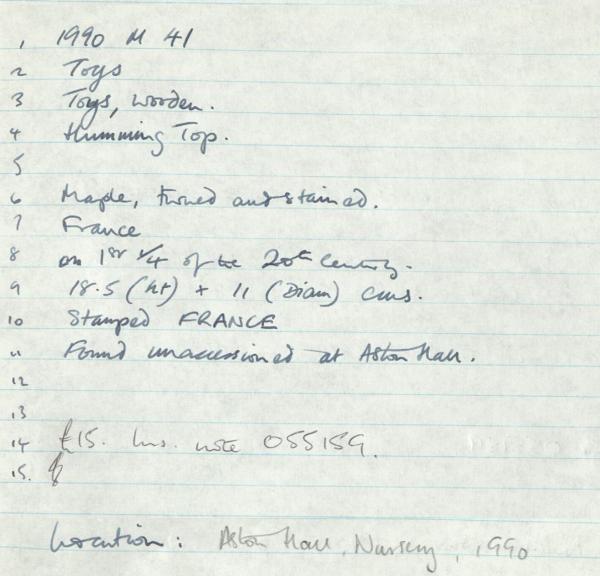 1 1990 M 41
2 Toys
3 Toys, wooden.
4 Humming Top.
5
6 Maple, turned and stained.
7 France
8 on 1st 1/4 of the 20th Century.
9 18.5 (ht) + 11 (Diam) cms.
10 Stamped FRANCE
11 Found unaccessioned at Aston Hall.
12
13
14 £15. Ins. note 055159.
15.
Location: Aston Hall, Nursery, 1990